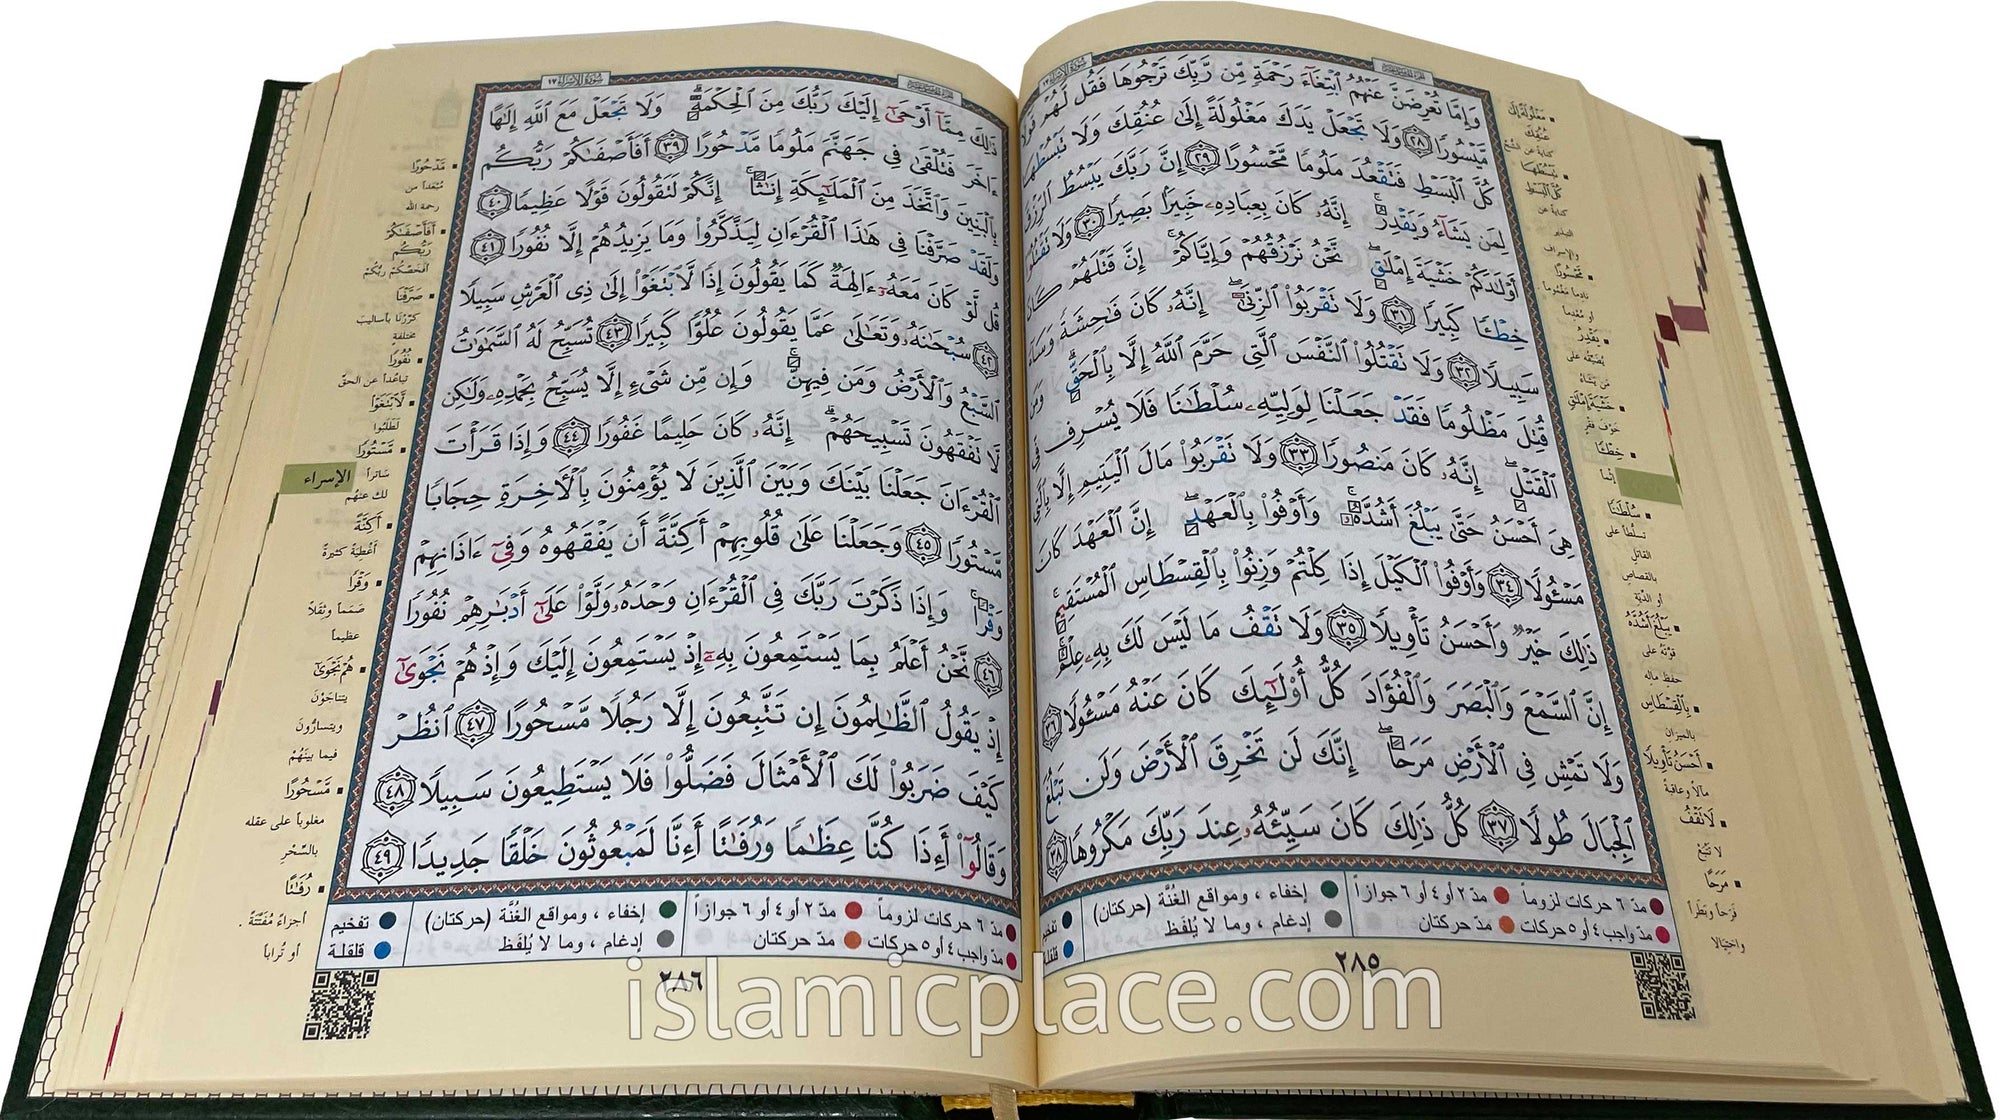 سُورَةُ الإِسْرَاءِ ١٧
وَإِمَّا تُعْرِضَنَّ عَنْهُمُ ٱبْتِغَآءَ رَحْمَةٍ مِّن رَّبِّكَ تَرْجُوهَا فَقُل لَّهُمْ قَوْلًا
مَّيْسُورًا ٢٨ وَلَا تَجْعَلْ يَدَكَ مَغْلُولَةً إِلَىٰ عُنُقِكَ وَلَا تَبْسُطْهَا
كُلَّ ٱلْبَسْطِ فَتَقْعُدَ مَلُومًا مَّحْسُورًا ٢٩ إِنَّ رَبَّكَ يَبْسُطُ ٱلرِّزْقَ
لِمَن يَشَآءُ وَيَقْدِرُ ۚ إِنَّهُۥ كَانَ بِعِبَادِهِۦ خَبِيرًۢا بَصِيرًا ٣٠ وَلَا تَقْتُلُوٓا۟
أَوْلَٰدَكُمْ خَشْيَةَ إِمْلَٰقٍ ۖ نَّحْنُ نَرْزُقُهُمْ وَإِيَّاكُمْ ۚ إِنَّ قَتْلَهُمْ كَانَ
خِطْـًٔا كَبِيرًا ٣١ وَلَا تَقْرَبُوا۟ ٱلزِّنَىٰٓ ۖ إِنَّهُۥ كَانَ فَٰحِشَةً وَسَآءَ
سَبِيلًا ٣٢ وَلَا تَقْتُلُوا۟ ٱلنَّفْسَ ٱلَّتِى حَرَّمَ ٱللَّهُ إِلَّا بِٱلْحَقِّ ۗ وَمَن
قُتِلَ مَظْلُومًا فَقَدْ جَعَلْنَا لِوَلِيِّهِۦ سُلْطَٰنًا فَلَا يُسْرِف فِّى
ٱلْقَتْلِ ۖ إِنَّهُۥ كَانَ مَنصُورًا ٣٣ وَلَا تَقْرَبُوا۟ مَالَ ٱلْيَتِيمِ إِلَّا بِٱلَّتِى
هِىَ أَحْسَنُ حَتَّىٰ يَبْلُغَ أَشُدَّهُۥ ۚ وَأَوْفُوا۟ بِٱلْعَهْدِ ۖ إِنَّ ٱلْعَهْدَ كَانَ
مَسْـُٔولًا ٣٤ وَأَوْفُوا۟ ٱلْكَيْلَ إِذَا كِلْتُمْ وَزِنُوا۟ بِٱلْقِسْطَاسِ ٱلْمُسْتَقِيمِ ۚ
ذَٰلِكَ خَيْرٌ وَأَحْسَنُ تَأْوِيلًا ٣٥ وَلَا تَقْفُ مَا لَيْسَ لَكَ بِهِۦ عِلْمٌ ۚ
إِنَّ ٱلسَّمْعَ وَٱلْبَصَرَ وَٱلْفُؤَادَ كُلُّ أُو۟لَٰٓئِكَ كَانَ عَنْهُ مَسْـُٔولًا ٣٦
وَلَا تَمْشِ فِى ٱلْأَرْضِ مَرَحًا ۖ إِنَّكَ لَن تَخْرِقَ ٱلْأَرْضَ وَلَن تَبْلُغَ
ٱلْجِبَالَ طُولًا ٣٧ كُلُّ ذَٰلِكَ كَانَ سَيِّئُهُۥ عِندَ رَبِّكَ مَكْرُوهًا ٣٨
مَغْلُولَةً إِلَىٰ
عُنُقِكَ
كناية عن الشُّحّ
تَبْسُطْهَا
كُلَّ الْبَسْطِ
كناية عن
التبذير
والإسراف
مَّحْسُورًا
نادماً مغموماً
أو مُعْدِماً
يَقْدِرُ
يُضَيِّقُه على
مَن يَشَاءُ
خَشْيَةَ إِمْلَٰقٍ
خَوْفَ فقر
خِطْـًٔا
إثماً
سُلْطَٰنًا
تسلُّطاً على
القاتل
بالقصاص
أو الدّيَة
يَبْلُغَ أَشُدَّهُ
قوّتَهُ على
حفظ ماله
بِالْقِسْطَاسِ
بالميزان
أَحْسَنُ تَأْوِيلًا
مآلاً وعاقبةً
لَا تَقْفُ
لا تتَّبعْ
مَرَحًا
فَرَحاً وبَطَراً
واختيالا
مدّ ٦ حركات لزوماً مدّ ٢ أو ٤ أو ٦ جوازاً إخفاء ، ومواقع الغُنَّة (حركتان) تفخيم
مدّ واجب ٤ أو ٥ حركات مدّ حركتان إدغام ، وما لا يُلفَظ قلقلة
٢٨٥
سُورَةُ الإِسْرَاءِ ١٧
ذَٰلِكَ مِمَّآ أَوْحَىٰٓ إِلَيْكَ رَبُّكَ مِنَ ٱلْحِكْمَةِ ۗ وَلَا تَجْعَلْ مَعَ ٱللَّهِ إِلَٰهًا
ءَاخَرَ فَتُلْقَىٰ فِى جَهَنَّمَ مَلُومًا مَّدْحُورًا ٣٩ أَفَأَصْفَىٰكُمْ رَبُّكُم
بِٱلْبَنِينَ وَٱتَّخَذَ مِنَ ٱلْمَلَٰٓئِكَةِ إِنَٰثًا ۚ إِنَّكُمْ لَتَقُولُونَ قَوْلًا عَظِيمًا ٤٠
وَلَقَدْ صَرَّفْنَا فِى هَٰذَا ٱلْقُرْءَانِ لِيَذَّكَّرُوا۟ وَمَا يَزِيدُهُمْ إِلَّا نُفُورًا ٤١
قُل لَّوْ كَانَ مَعَهُۥٓ ءَالِهَةٌ كَمَا يَقُولُونَ إِذًا لَّٱبْتَغَوْا۟ إِلَىٰ ذِى ٱلْعَرْشِ سَبِيلًا
٤٢ سُبْحَٰنَهُۥ وَتَعَٰلَىٰ عَمَّا يَقُولُونَ عُلُوًّا كَبِيرًا ٤٣ تُسَبِّحُ لَهُ ٱلسَّمَٰوَٰتُ
ٱلسَّبْعُ وَٱلْأَرْضُ وَمَن فِيهِنَّ ۚ وَإِن مِّن شَىْءٍ إِلَّا يُسَبِّحُ بِحَمْدِهِۦ وَلَٰكِن
لَّا تَفْقَهُونَ تَسْبِيحَهُمْ ۗ إِنَّهُۥ كَانَ حَلِيمًا غَفُورًا ٤٤ وَإِذَا قَرَأْتَ
ٱلْقُرْءَانَ جَعَلْنَا بَيْنَكَ وَبَيْنَ ٱلَّذِينَ لَا يُؤْمِنُونَ بِٱلْءَاخِرَةِ حِجَابًا
مَّسْتُورًا ٤٥ وَجَعَلْنَا عَلَىٰ قُلُوبِهِمْ أَكِنَّةً أَن يَفْقَهُوهُ وَفِىٓ ءَاذَانِهِمْ
وَقْرًا ۚ وَإِذَا ذَكَرْتَ رَبَّكَ فِى ٱلْقُرْءَانِ وَحْدَهُۥ وَلَّوْا۟ عَلَىٰٓ أَدْبَٰرِهِمْ نُفُورًا
٤٦ نَّحْنُ أَعْلَمُ بِمَا يَسْتَمِعُونَ بِهِۦٓ إِذْ يَسْتَمِعُونَ إِلَيْكَ وَإِذْ هُمْ نَجْوَىٰٓ
إِذْ يَقُولُ ٱلظَّٰلِمُونَ إِن تَتَّبِعُونَ إِلَّا رَجُلًا مَّسْحُورًا ٤٧ ٱنظُرْ
كَيْفَ ضَرَبُوا۟ لَكَ ٱلْأَمْثَالَ فَضَلُّوا۟ فَلَا يَسْتَطِيعُونَ سَبِيلًا ٤٨
وَقَالُوٓا۟ أَءِذَا كُنَّا عِظَٰمًا وَرُفَٰتًا أَءِنَّا لَمَبْعُوثُونَ خَلْقًا جَدِيدًا ٤٩
مَّدْحُورًا
مُبْعَداً من
رحمة الله
أَفَأَصْفَىٰكُمْ
رَبُّكُم
أفخصّكُمْ ربُّكُمْ
صَرَّفْنَا
كرّرْنا بأساليب
مختلفة
نُفُورًا
تباعُداً عن الحقّ
لَّابْتَغَوْا
لَطَلَبُوا
مَّسْتُورًا
ساتراً
لك عنهُم
الإسراء
أَكِنَّةً
أغْطِيَة كثيرةً
وَقْرًا
صَمَماً وثِقَلاً
عظيماً
هُمْ نَجْوَىٰٓ
يتناجَوْن
ويتسارُّون
فيما بيْنَهُمْ
مَّسْحُورًا
مغلوباً على عقله
بالسِّحْر
رُفَٰتًا
أجزاءً مُفَتَّتَةً .
أو تُراباً
مدّ ٦ حركات لزوماً مدّ ٢ أو ٤ أو ٦ جوازاً إخفاء ، ومواقع الغُنَّة (حركتان) تفخيم
مدّ واجب ٤ أو ٥ حركات مدّ حركتان إدغام ، وما لا يُلفَظ قلقلة
٢٨٦
islamicplace.com